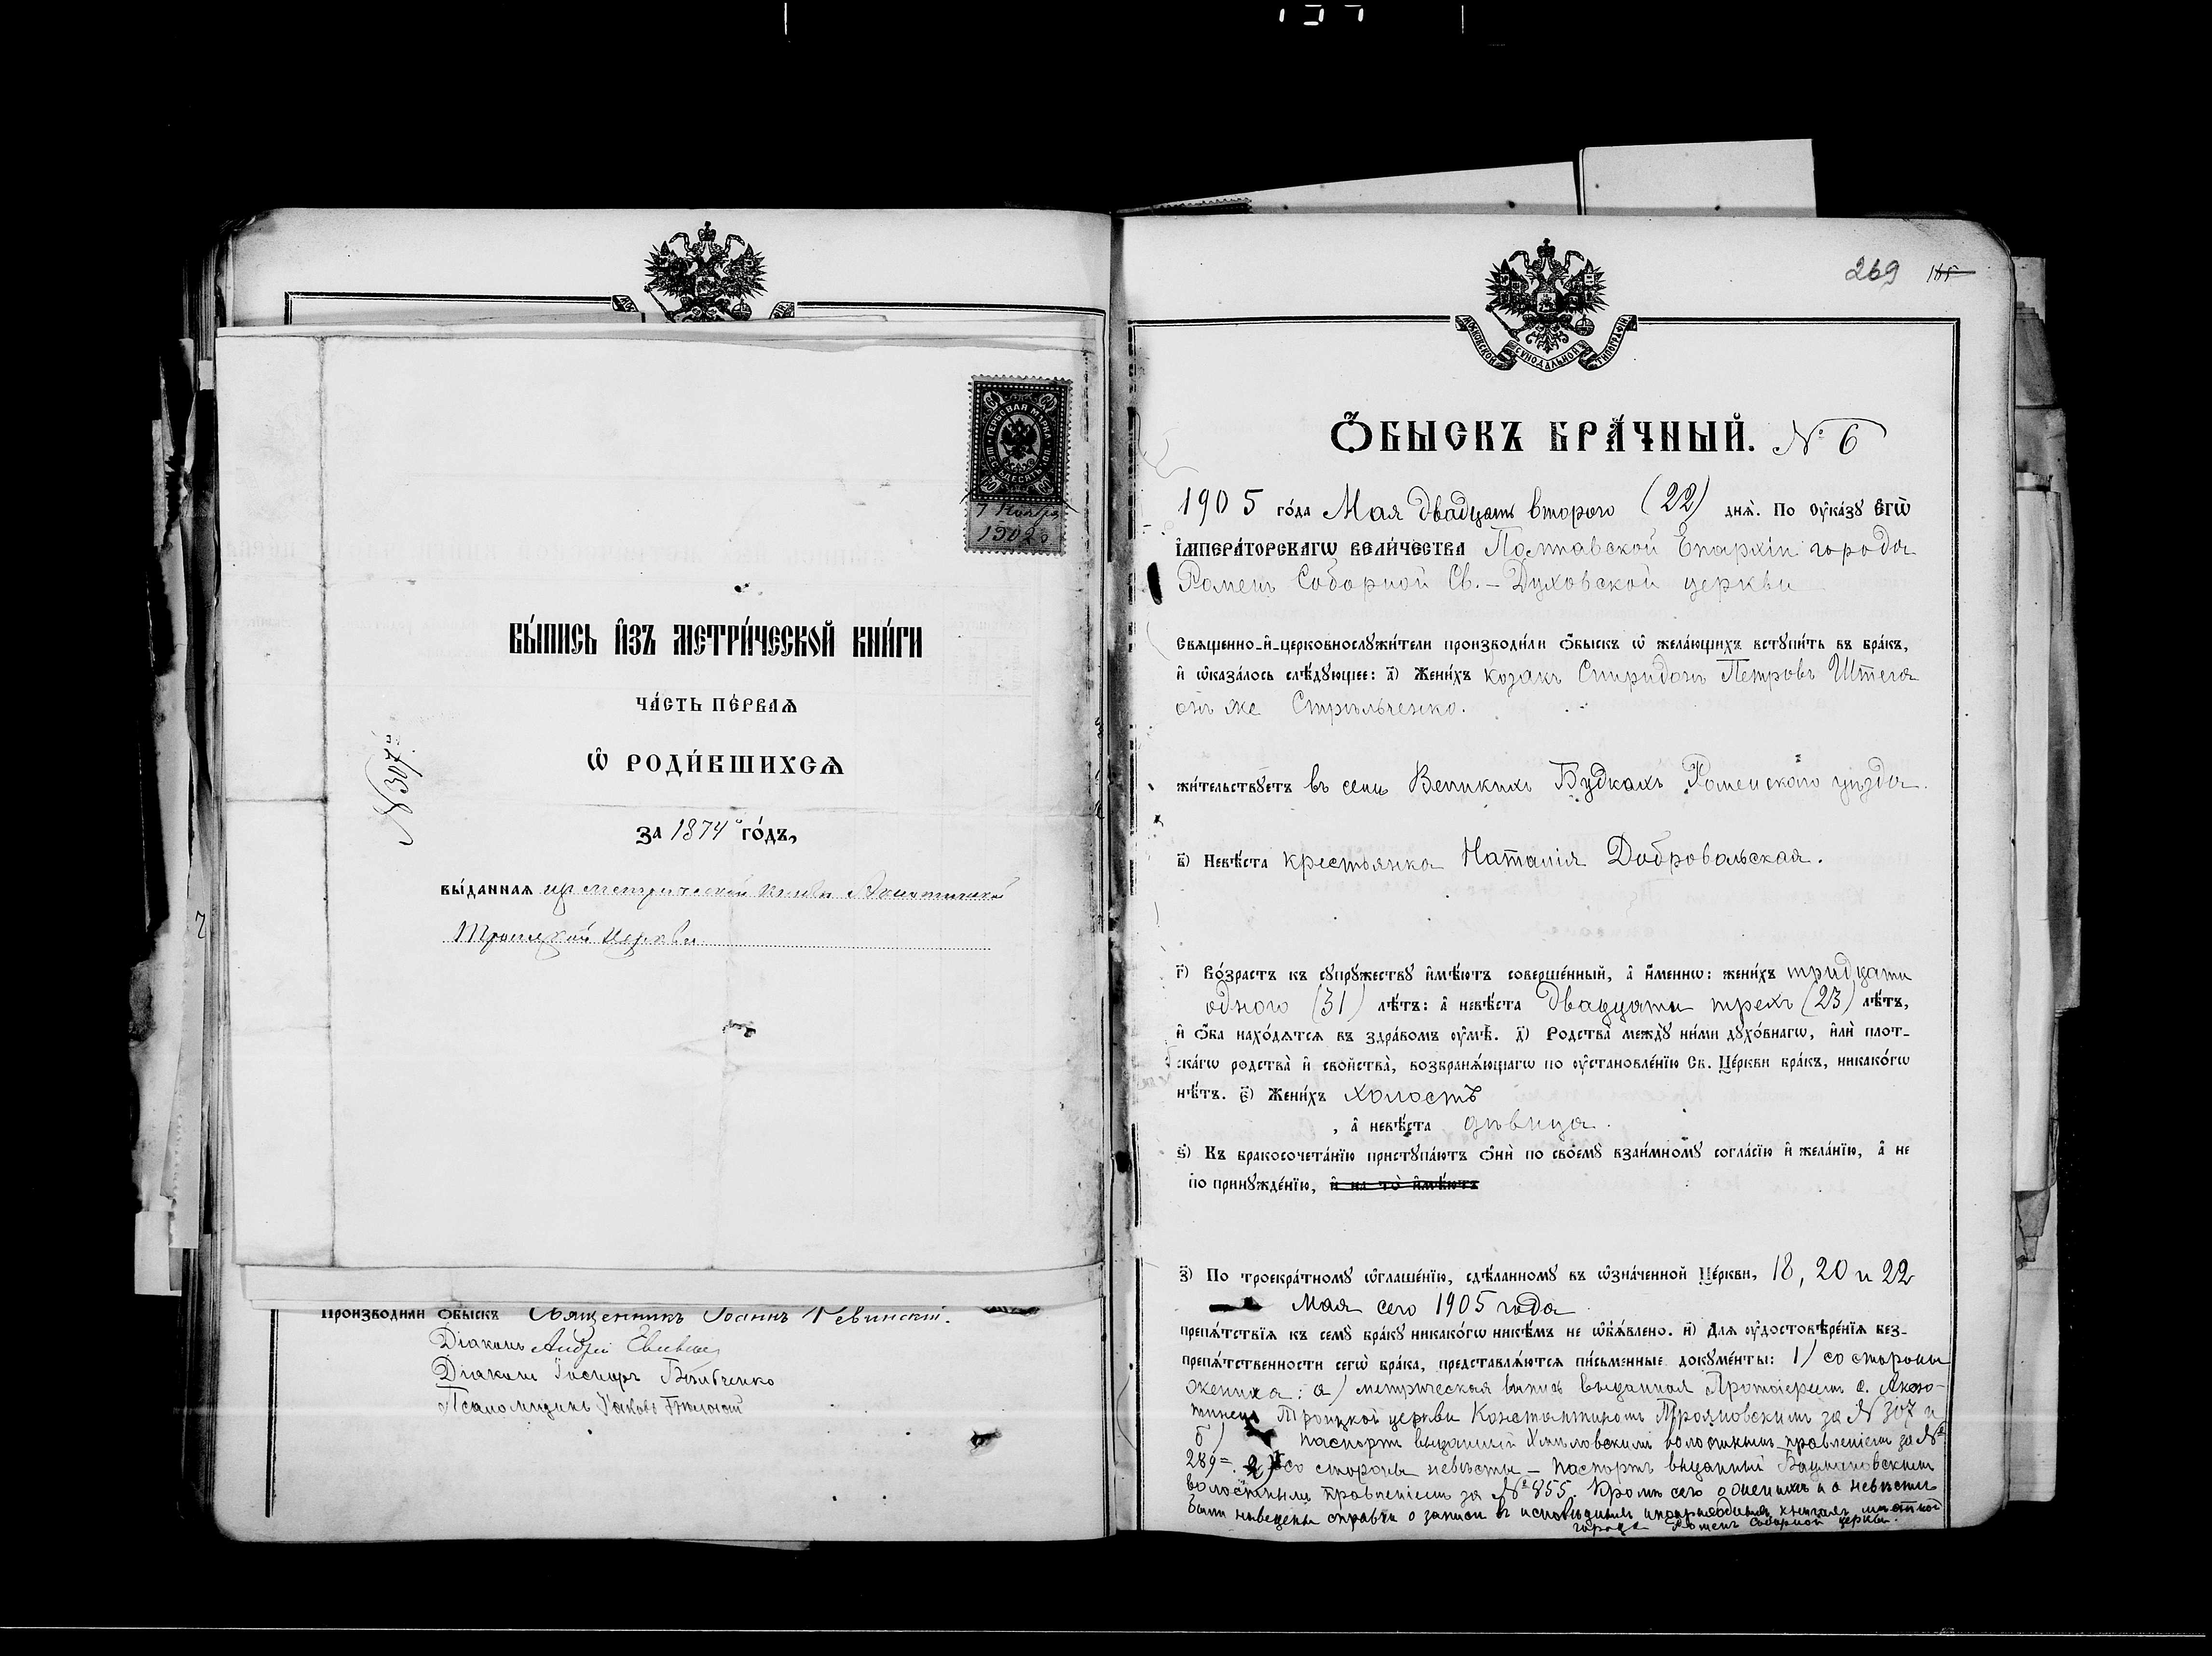 ГЕРБОВАЯ МАРКА
ШЕСТЬДЕСЯТЪ КОП.
60
7 Ноября
1902 г.
ВЫ́ПИСЬ И҆ЗЪ МЕТРИ́ЧЕСКОЙ КНИ́ГИ
ЧА́СТЬ ПЕ́РВАѦ
Ѡ҆ РОДИ́ВШИХСѦ
№ 307й
ЗА 1874й ГО́ДЪ,
ВЫ́ДАННАѦ из метрической книги
Троицкой Церкви
Производили Ѻбыскъ Священникъ Іоаннъ
Діаконъ Андрей
Діаконъ
Псаломщикъ Яковъ
269 165
МОСКОВСКОЙ СѴНОДАЛЬНОЙ ТИПОГРАФІИ
Ѻ҆БЫСКЪ БРА́ЧНЫЙ. № 6
1905 го́да Мая двадцать втораго (22) днѧ̀. По ᲂу҆ка́зꙋ Є҆гѡ̀
І҆мпера́торскагѡ Вели́чества Полтавской Епархіи города
Роменъ Соборной Св.-Духовской церкви
Свѧщенно-и҆-церковнослꙋжи́тели производи́ли ѻ҆́быскъ ѡ҆ жела́ющихъ встꙋпи́ть въ бра́къ,
и҆ ѡ҆каза́лось слѣ́дꙋющее: а҃) Жени́хъ козакъ Спиридонъ Петровъ Штега
онъ же Стрѣльченко.
жи́тельствꙋетъ въ селѣ Великихъ Будкахъ Роменскаго уѣзда.
в҃) Невѣ́ста крестьянка Наталія Добровольская.
г҃) Во́зрастъ къ сꙋпрꙋ́жествꙋ и҆мѣ́ютъ соверше́нный, а҆ и҆́меннѡ: жени́хъ тридцати
одного (31) лѣ́тъ: а҆ невѣ́ста двадцати трехъ (23) лѣ́тъ,
и҆ ѻ҆́ба нахо́дѧтсѧ въ здра́вомъ ᲂу҆мѣ̀. д҃) Родства̀ междꙋ̀ ни́ми дꙋхо́внагѡ, и҆лѝ плот-
ска́гѡ родства̀ и҆ свойства̀, возбранѧ́ющагѡ по ᲂу҆становле́нїю Св. Це́ркви бра́къ, никако́гѡ
нѣ́тъ. є҃) Жени́хъ холостъ
, а҆ невѣ́ста дѣвица.
ѕ҃) Къ бракосочета́нїю пристꙋпа́ютъ ѻ҆нѝ по своемꙋ̀ взаи́мномꙋ согла́сїю и҆ жела́нїю, а҆ не
по принꙋжде́нїю, и҆ на то̀ и҆мѣ́ютъ
з҃) По троекра́тномꙋ ѡ҆глаше́нїю, сдѣ́ланномꙋ въ ѡ҆зна́ченной Це́ркви, 18, 20 и 22
Мая сего 1905 года
препѧ́тствїѧ къ семꙋ̀ бра́кꙋ никако́гѡ никѣ́мъ не ѡ҆б̾ѧ́влено. и҃) Длѧ ᲂу҆достовѣре́нїѧ без-
препѧ́тственности сегѡ̀ бра́ка, представлѧ́ютсѧ пи́сьменные докꙋме́нты: 1) со стороны
жениха: а) метрическая выпись выданная Протоіереемъ с.
Троицкой церкви Константиномъ Трояновскимъ за № 307 и
б) паспортъ выданный Хмѣловскимъ волостнымъ правленіемъ за №
289. 2) со стороны невѣсты - паспортъ выданный
волостнымъ правленіемъ за № 855. Кромѣ сего о женихѣ и о невѣстѣ
были наведены справки о записи въ исповѣдныхъ и приходныхъ книгахъ мѣстной
города Роменъ Соборной церкви.